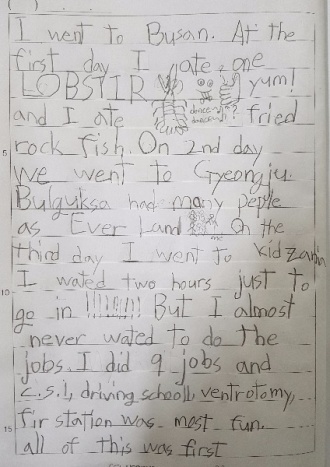 I went to Busan. At the
first day I ate one
LOBSTIR yum!
and I ate fried
5 rock fish. On 2nd day
we went to Gyeongju.
Bulguksa had many people
as Ever Land On the
me
third day I went to Kid Zania
10 I wated two hours just to
go in !!!!!!!! But I almost
never wated to do the
jobs. I did 9 jobs and
c.s.I, driving schooll, ventrotomy,
15 fir station was most fun.
all of this was first